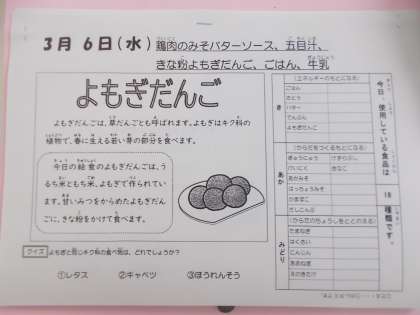 3月 6日(水) 鶏肉のみそバターソース、五目汁、
きな粉よもぎだんご、ごはん、牛乳
よもぎだんご
よもぎだんごは、草だんごとも呼ばれます。よもぎはキク科の
植物で、春に生える若い芽の部分を食べます。
今日の給食のよもぎだんごは、う
るち米ともち米、よもぎで作られてい
ます。甘いみつをからめたよもぎだん
ごに、きな粉をかけて食べます。
クイズ よもぎと同じキク科の食べ物は、どれでしょうか?
①レタス ②キャベツ ③ほうれんそう
今日、使用している食品は
18
種類です。
き
(エネルギーのもとになる)
ごはん
さとう
バター
でんぷん
よもぎだんご
あか
(からだをつくるもとになる)
ぎゅうにゅう
けいにく きなこ
あかみそ
はっちょうみそ
かまぼこ
みどり
(からだのちょうしをととのえる)
たまねぎ
はくさい
にんじん